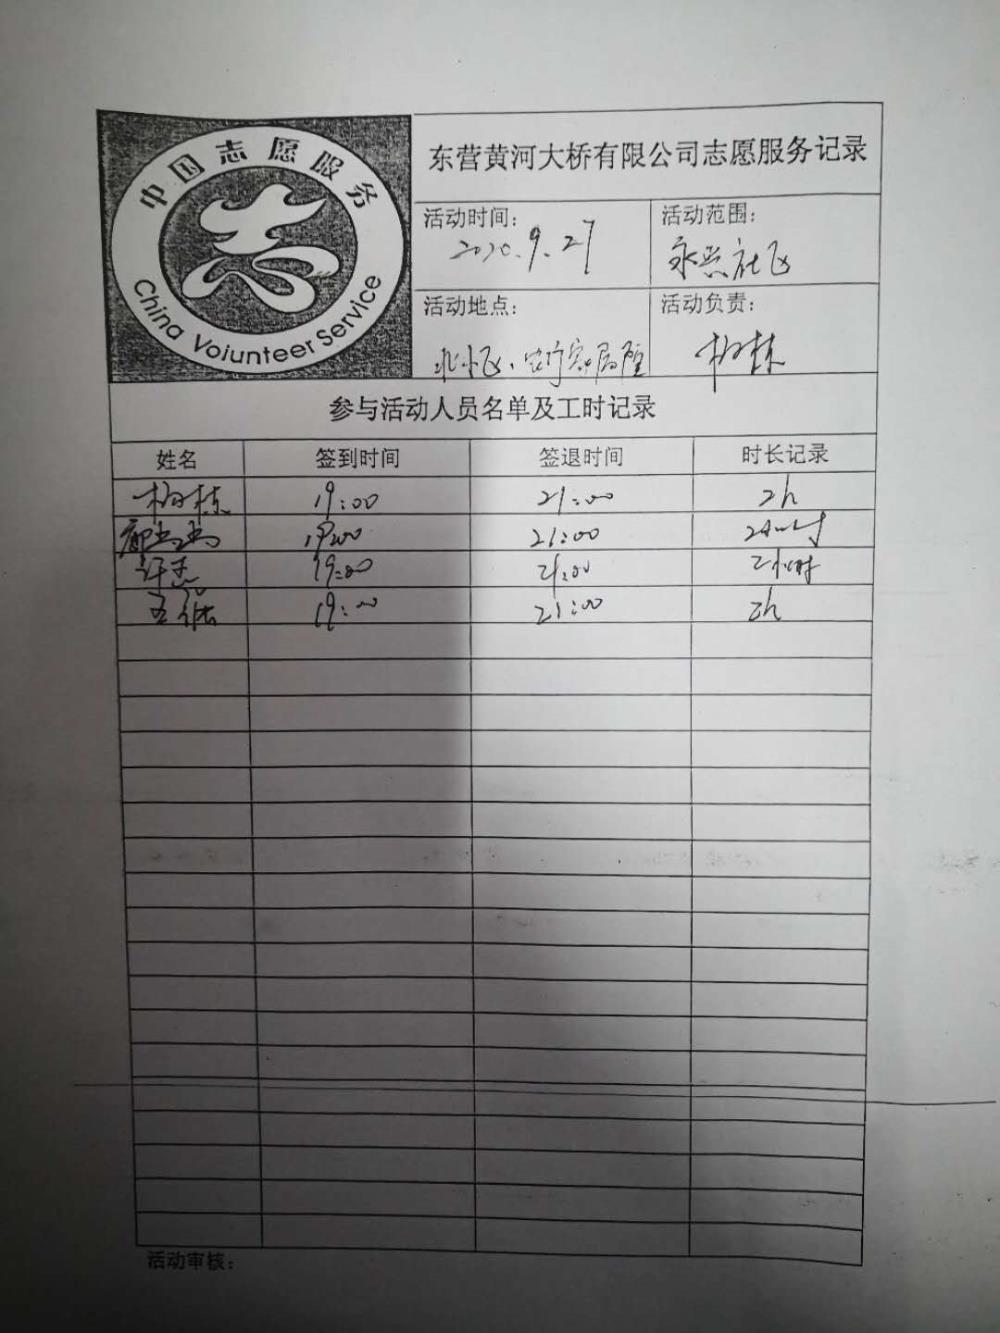 中国志愿服务
China Voiunteer Service
东营黄河大桥有限公司志愿服务记录
活动时间：
2020.9.27
活动范围：
永兴社区
活动地点：
活动负责：
柳栋
参与活动人员名单及工时记录
姓名 签到时间 签退时间 时长记录
柳栋 19:00 21:00 2h
19:00 21:00 2小时
许杰 19:00 21:00 2小时
19:00 21:00 2h
活动审核：